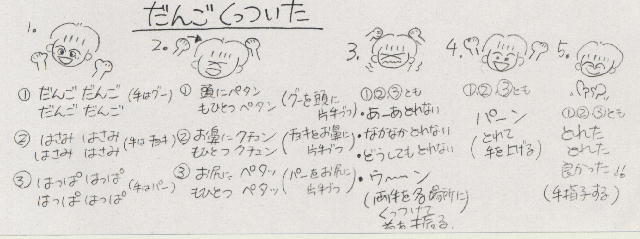 だんごくっついた
1.
① だんご だんご (手はグー)
だんご だんご
② はさみ はさみ (手はチョキ)
はさみ はさみ
③ はっぱ はっぱ (手はパー)
はっぱ はっぱ
2.
① 頭にペタン (グーを頭に
もひとつ ペタン 片手づつ)
② お鼻にクチュン (チョキをお鼻に
もひとつ クチュン 片手づつ)
③ お尻に ペタッ (パーをお尻に
もひとつ ペタッ 片手づつ)
3.
①②③とも
・あーあとれない
・なかなかとれない
・どうしてもとれない
・ウ〜〜ン
(両手を各場所に
くっつけて
振る)
4.
①②③とも
パーン
(とれて
手を上げる)
5.
①②③とも
とれた
とれた
良かった!!
(手拍子する)